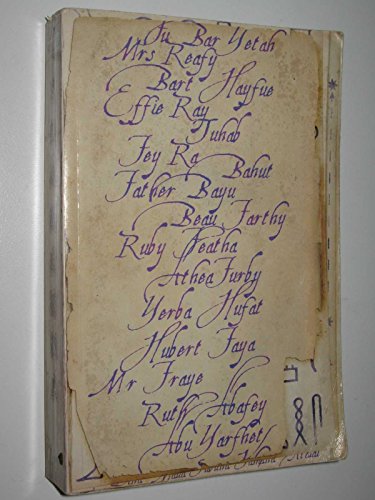 Ju Bar Yetah
Mrs Reafy
Bart Hayfue
Effie Ray
Juhab
Jey Ra
Bahut
Father Bayu
Beau Farthy
Ruby Featha
Athea Furby
Yerba Hufat
Hubert Faya
Mr Fraye
Ruth Abafey
Abu Yarfhet